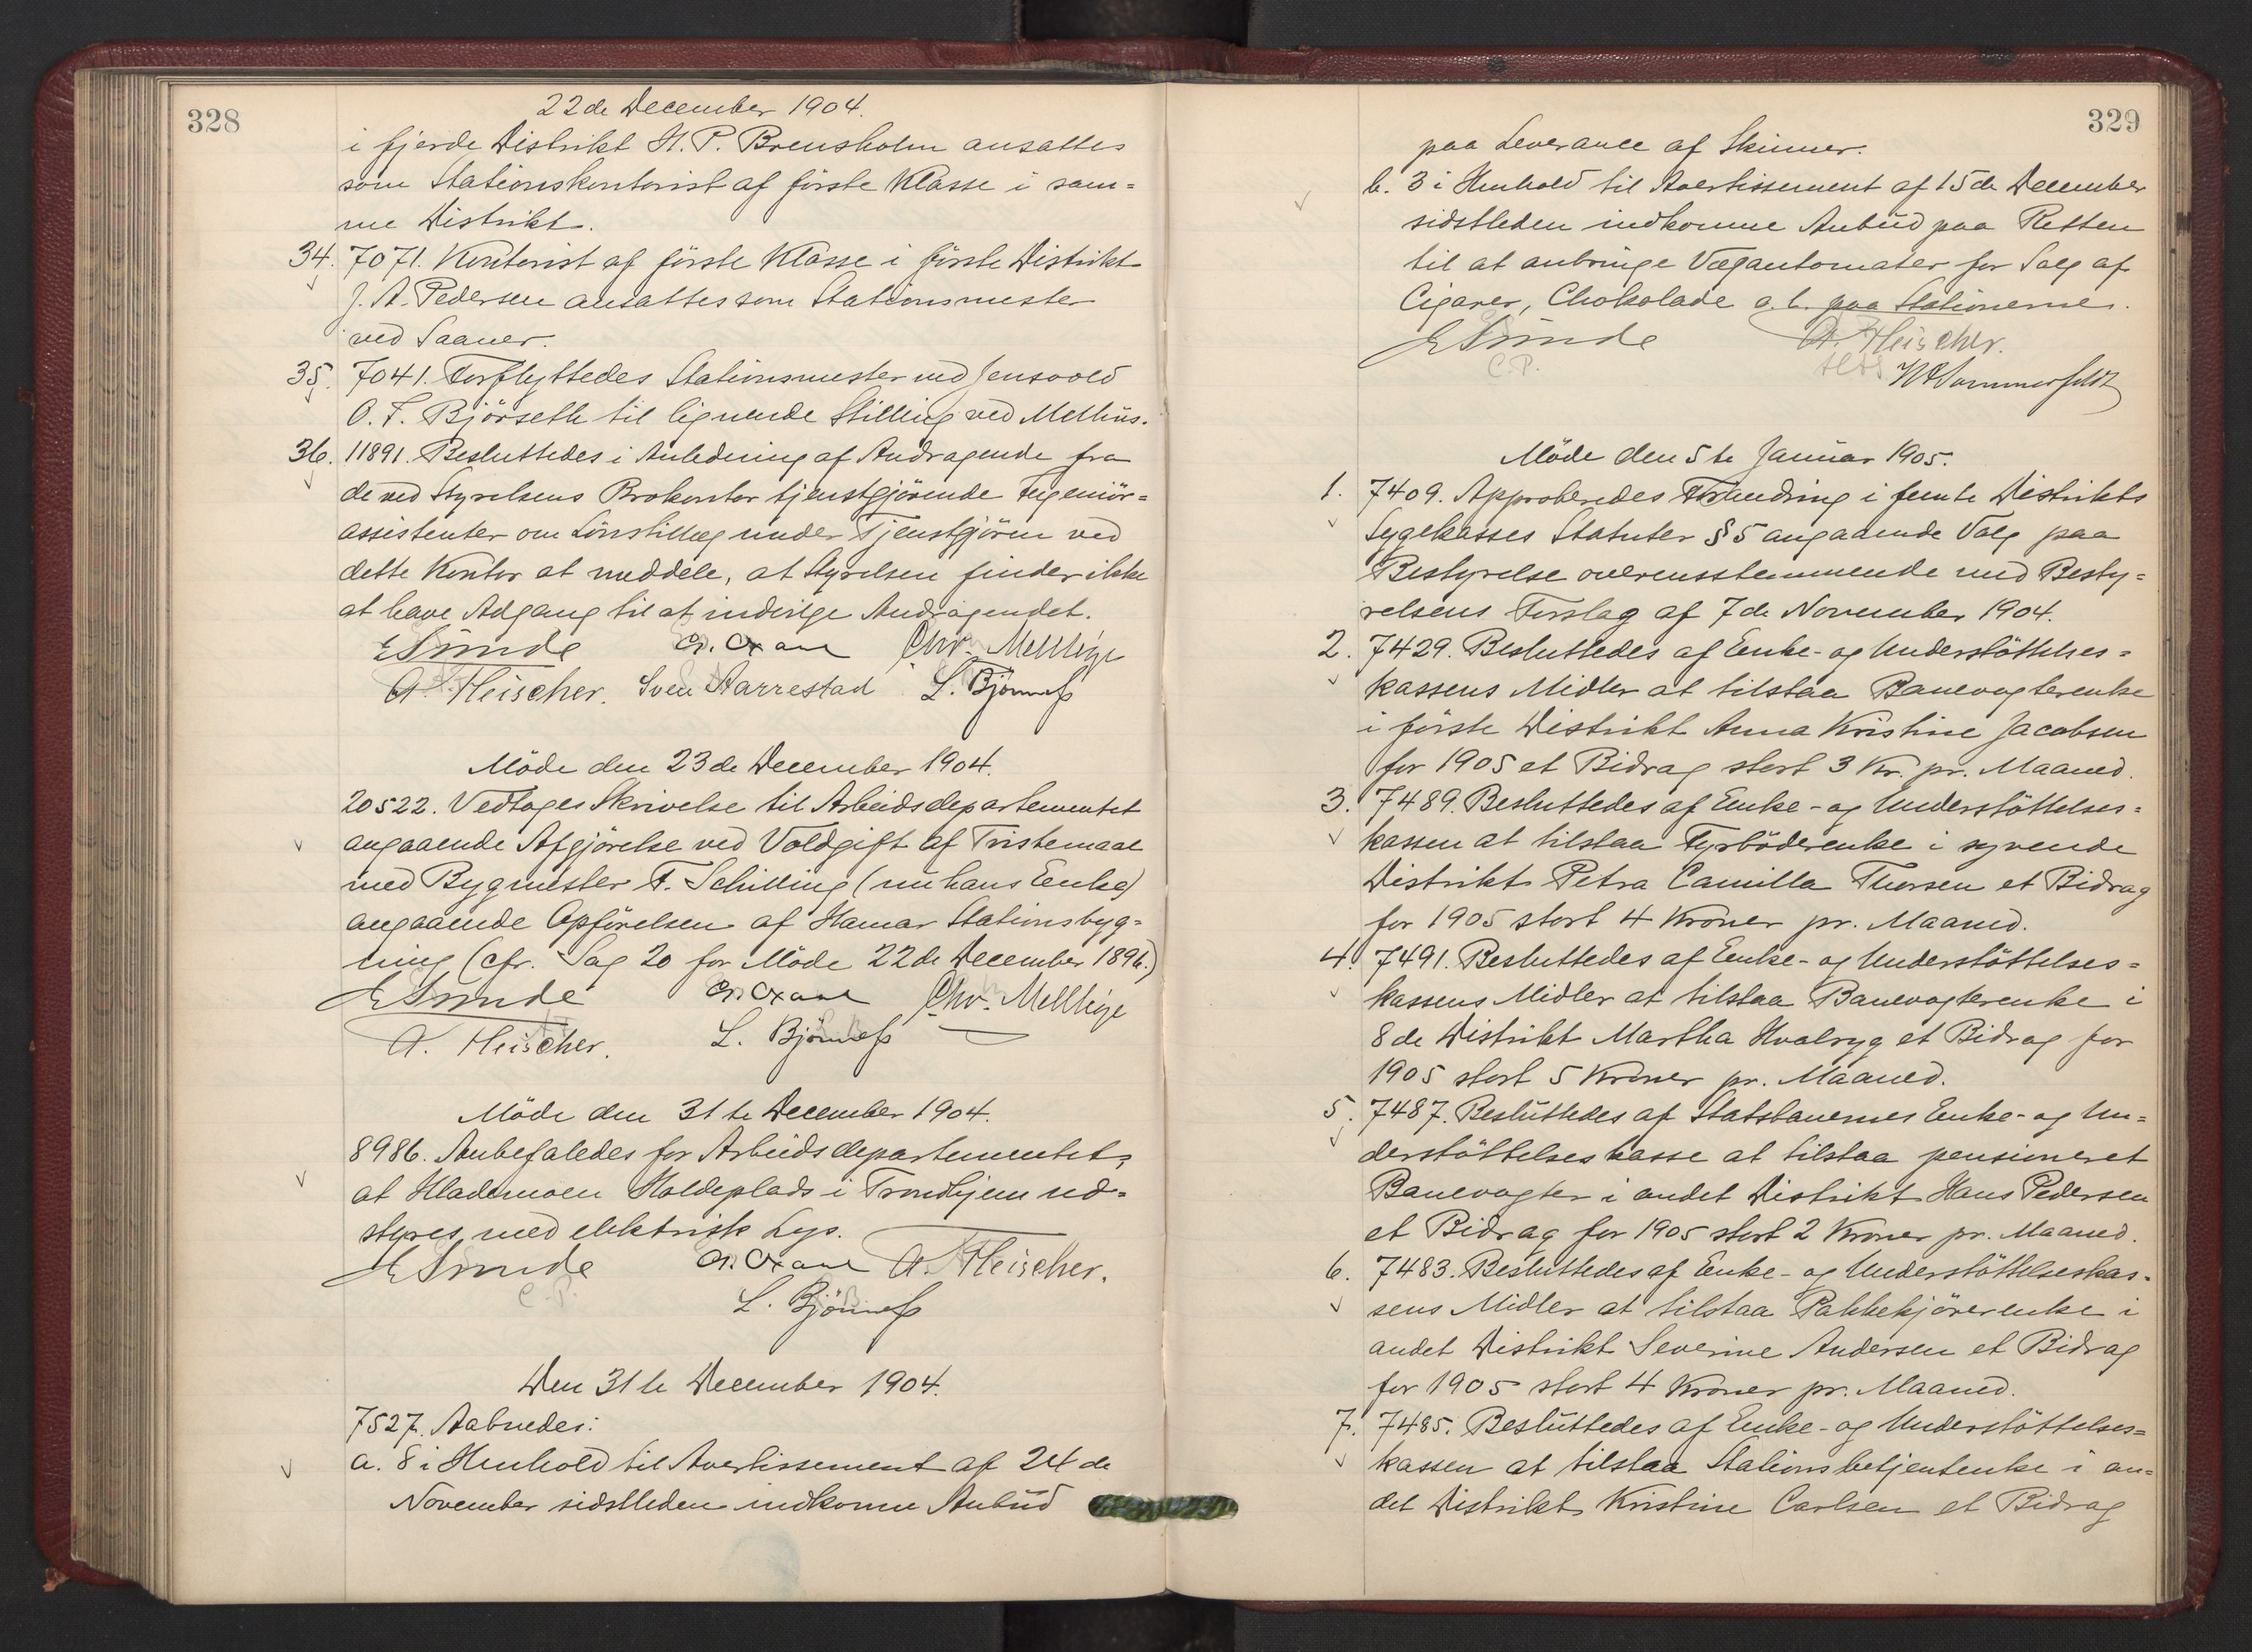 328
22de December 1904.
i fjerde Distrikt H. P. Brensholm ansattes
som Stationskontorist af förste Klasse i sam=
me Distrikt.
34. 7071. Kontorist af förste Klasse i förste Distrikt
J. A. Pedersen ansattes som Stationsmester
ved Saaner.
35. 7041. Forflyttedes Stationsmester ved Jensvold
O. F. Björseth til lignende Stilling ved Melhus.
36. 11891. Besluttedes i Anledning af Andragende fra
de ved Styrelsens Brokontor tjenstgjörende Ingeniör=
assistenter om Lönstillæg under Tjenstgjören ved
dette Kontor at meddele, at Styrelsen finder ikke
at have Adgang til at indvilge Andragendet.
E Sunde Chr. Mellbye
A. Fleischer. Sven Aarrestad L. Björnnæss
Möde den 23de December 1904.
20522. Vedtoges Skrivelse til Arbeidsdepartementet
angaaende Afgjörelse ved Voldgift af Tvistemaal
med Bygmester F. Schilling (nu hans Enke)
angaaende Opförelsen af Hamar Stationsbyg=
ning (cfr. Sag 20 for Möde 22de December 1896.)
E Sunde Chr. Mellbye
A. Fleischer. L. Björnnæss
Möde den 31te December 1904.
8986. Anbefaledes for Arbeidsdepartementet,
at Hlademoen Holdeplads i Trondhjem ud=
styres med elektrisk Lys.
E Sunde A. Fleischer.
C. P.
L. Björnnæss
Den 31te December 1904.
7527. Aabnedes:
a. 8 i Henhold til Avertissement af 24de
November sidstleden indkomne Anbud
329
paa Leverance af Skinner.
b. 3 i Henhold til Avertissement af 15de December
sidstleden indkomne Anbud paa Retten
til at anbringe Vægautomater for Salg af
Cigarer, Chokolade o. l. paa Stationerne.
E Sunde A. Fleischer.
C. P. Sommerfeldt
Möde den 5te Januar 1905.
1. 7409. Approberedes Forandring i femte Distrikts
Sygekasses Statuter § 5 angaaende Valg paa
Bestyrelse overensstemmende med Besty=
relsens Forslag af 7de November 1904.
2. 7429. Besluttedes af Enke- og Understöttelses=
kassens Midler at tilstaa Banevogterenke
i förste Distrikt Anna Kristine Jacobsen
for 1905 et Bidrag stort 3 Kr. pr. Maaned.
3. 7489. Besluttedes af Enke- og Understöttelses=
kassen at tilstaa Fyrböderenke i syvende
Distrikt Petra Camilla Thorsen et Bidrag
for 1905 stort 4 Kroner pr. Maaned.
4. 7491. Besluttedes af Enke- og Understöttelses=
kassens Midler at tilstaa Banevogterenke i
8de Distrikt Martha Hvalryg et Bidrag for
1905 stort 5 Kroner pr. Maaned.
5. 7487. Besluttedes af Statsbanernes Enke- og Un=
derstöttelseskasse at tilstaa pensioneret
Banevogter i andet Distrikt Hans Pedersen
et Bidrag for 1905 stort 2 Kroner pr. Maaned.
6. 7483. Besluttedes af Enke- og Understöttelseskas=
sens Midler at tilstaa Pakkekjörerenke i
andet Distrikt Severine Andersen et Bidrag
for 1905 stort 4 Kroner pr. Maaned.
7. 7485. Besluttedes af Enke- og Understöttelses=
kassen at tilstaa Stationsbetjentenke i an=
det Distrikt Kristine Carlsen et Bidrag